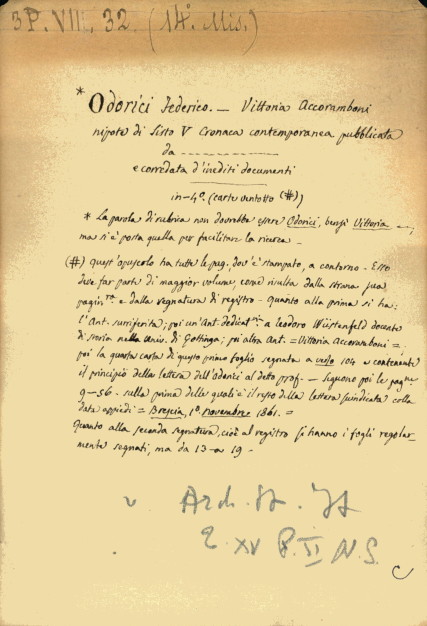 3P. VIII. 32. (14°. Mis.)
* Odorici Federico. — Vittoria Accoramboni
nipote di Sisto V Cronaca contemporanea pubblicata
da ------------
e corredata d'inediti documenti
in-4°. (carte ventotto (#))
* La parola di rubrica non dovrebbe essere Odorici, bensì Vittoria —,
ma si è posta quella per facilitare la ricerca —
(#) Quest'opuscolo ha tutte le pag. dov'è stampato, a contorno — Esso
deve far parte di maggior volume, come risulta dalla strana sua
pagin.ne e dalla segnatura di registro — quanto alla prima si ha:
l'Ant. surriferita; poi un'Ant. Dedicat.ria a Teodoro Wüstenfeld docente
di storia nella Univ. di Gottinga; poi altra Ant. = Vittoria Accoramboni =
poi la quarta carta di questo primo foglio segnata a verso 104 e contenente
il principio della lettera dell'Odorici al detto prof. — Seguono poi le pagine
9-56. sulla prima delle quali è il resto della lettera suindicata colla
data appiedi = Brescia, 1° novembre 1861. =
Quanto alla seconda segnatura, cioè al registro si hanno i fogli regolar-
mente segnati, ma da 13 a 19 —
Arch. St. It
XV P. II N.S.